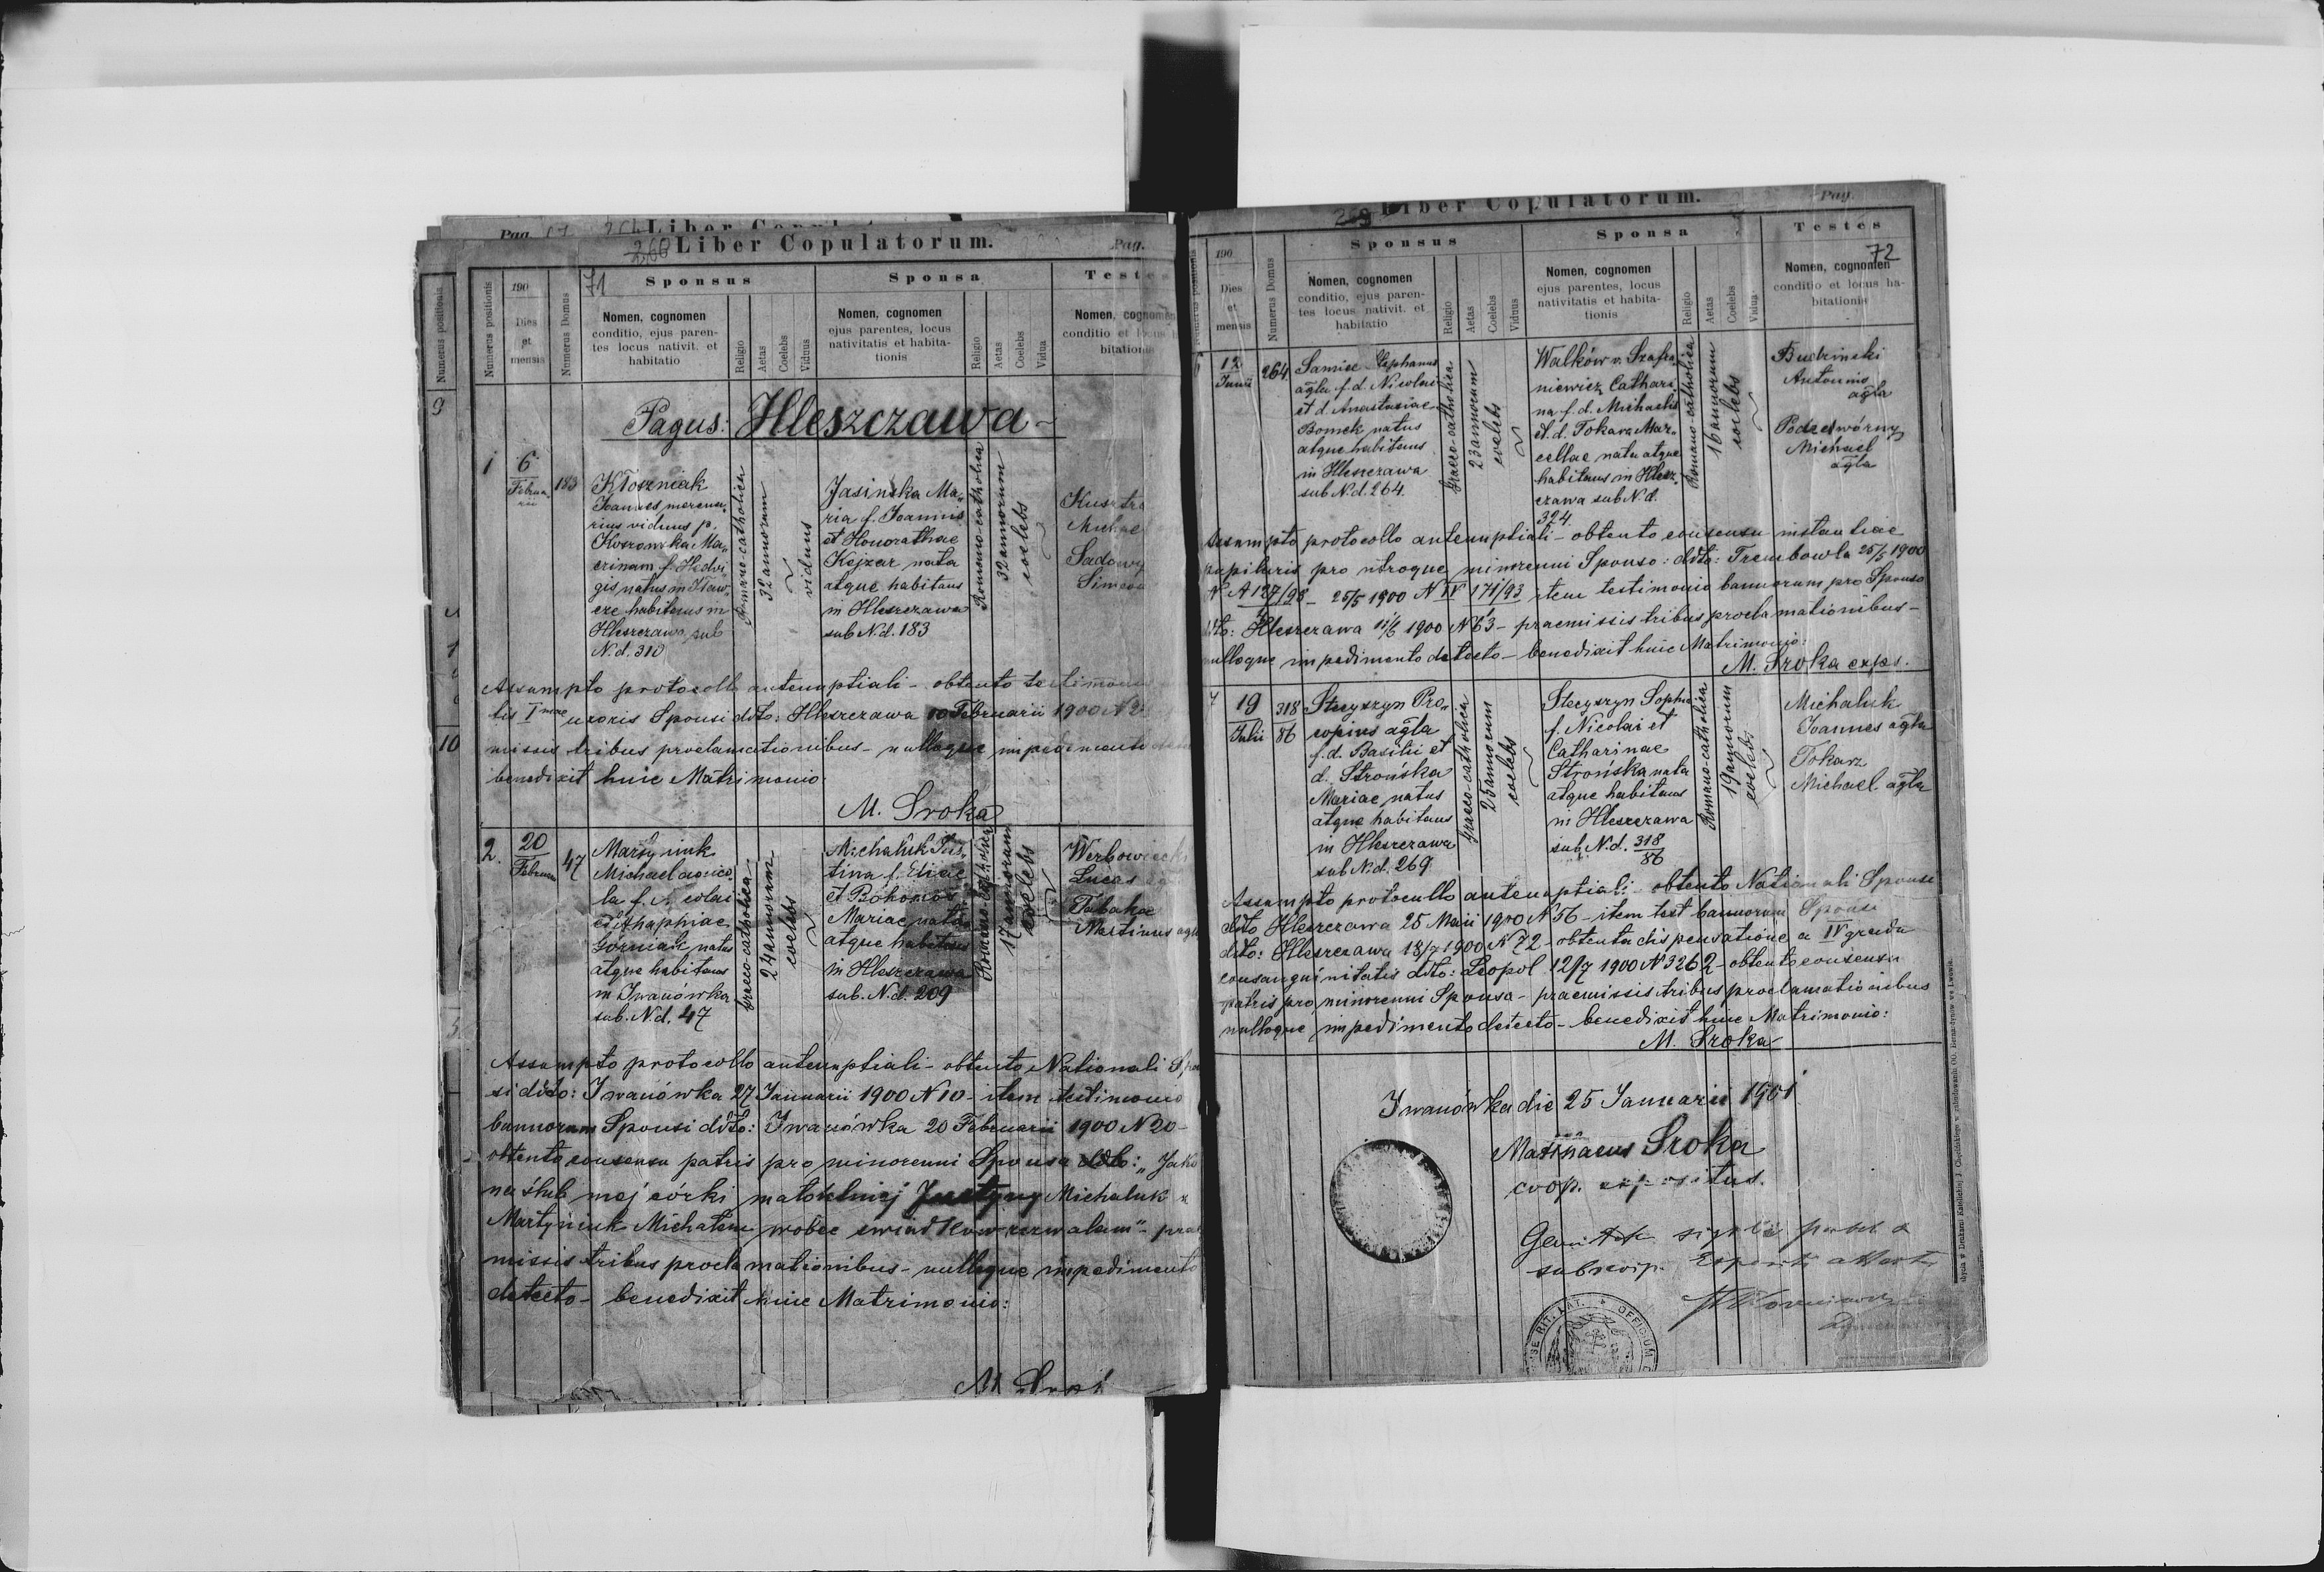 Liber Copulatorum.
Pag.
260
71
Numerus positionis
190
Dies
et
mensis
Numerus Domus
Sponsus
Nomen, cognomen
conditio, ejus paren-
tes locus nativit. et
habitatio
Religio
Aetas
Coelebs
Viduus
Sponsa
Nomen, cognomen
ejus parentes, locus
nativitatis et habita-
tionis
Religio
Aetas
Coelebs
Vidua
Testes
Nomen, cognomen
conditio et locus
bitationis
9
10
Pagus: Hleszczawa
1
6
Februa-
rii
183
Kłoszniak
Joannes mercena-
rius viduus p.
gis natus in
habitans in
Hleszczawa sub
N.d. 310
Romano-catholica
32 annorum
viduus
Jasinska Ma-
ria f. Joannis
et Honorathae
Kejzar nata
atque habitans
in Hleszczawa
sub N.d. 183
Romano-catholica
32 annorum
coelebs
Sadowy
Simeon
Assumpto protocollo antenuptiali - obtento
uxoris Sponsi ddto: Hleszczawa 10 Februarii 1900 N
missis tribus proclamationibus - nulloque impedimento
benedixit huic Matrimonio:
M. Sroka
2.
20
Februar
47
Martyniuk
Michael agrico-
la f. Nicolai
et Agaphiae
Górniak natus
atque habitans
in Iwanówka
sub. N.d. 47
Graeco-catholica
24 annorum
coelebs
Michaluk Jus-
tina f. Eliae
et
Mariae nata
atque habitans
in Hleszczawa
sub. N.d. 209
Romano-catholica
17 annorum
coelebs
Werbowiecki
Lucas
Tabaka
Martinus agla
Assumpto protocollo antenuptiali - obtento Nationali Spon
si ddto: Iwanówka 27 Januarii 1900 N 10 - item testimonio
bannorum Sponsi ddto: Iwanówka 20 Februarii 1900 N 20 -
obtento consensu patris pro minorenni Sponsa ddto: "Jako
na ślub mej córki małoletniej Justyny Michaluk z
Martyniuk Michałem wobec świadków zezwalam" - prae
missis tribus proclamationibus - nulloque impedimento
detecto - benedixit huic Matrimonio:
M.
Liber Copulatorum.
Pag.
72
190
Dies
et
mensis
Numerus Domus
Sponsus
Nomen, cognomen
conditio, ejus paren-
tes locus nativit. et
habitatio
Religio
Aetas
Coelebs
Viduus
Sponsa
Nomen, cognomen
ejus parentes, locus
nativitatis et habita-
tionis
Religio
Aetas
Coelebs
Vidua
Testes
Nomen, cognomen
conditio et locus ha-
bitationis
12
Junii
264
Samiec Stephanus
agla f. d. Nicolai
et d. Anastasiae
Bomek natus
atque habitans
in Hleszczawa
sub N.d. 264.
Graeco-catholica
23 annorum
coelebs
Walków v. Szafra-
niewicz Cathari-
na f. d. Michaelis
et d. Tokarz Mar-
cellae nata atque
habitans in Hlesz-
czawa sub N.d.
324.
Romano-catholica
16 annorum
coelebs
Budzinski
Antonius
agla
Podedwórny
Michael
agla
Assumpto protocollo antenuptiali - obtento consensu instantiae
pupilaris pro utroque minorenni Sponso: ddto: Trembowla 25/5 1900
N A 127/98 - 25/5 1900 N IV 171/93 item testimonio bannorum pro Sponso
ddto: Hleszczawa 11/6 1900 N 63 - praemissis tribus proclamationibus -
nulloque impedimento detecto - benedixit huic Matrimonio:
M. Sroka expos.
7
19
Julii
318
86
Stecyszyn Pro-
copius agla
f. d. Basilii et
d. Strońska
Mariae natus
atque habitans
in Hleszczawa
sub N.d. 269
Graeco-catholica
25 annorum
coelebs
Stecyszyn Sophia
f. Nicolai et
Catharinae
Strońska nata
atque habitans
in Hleszczawa
sub N.d. 318
86
Romano-catholica
19 annorum
coelebs
Michaluk
Joannes agla
Tokarz
Michael agla
Assumpto protocollo antenuptiali - obtento Nationali Sponsi
ddto Hleszczawa 25 Maii 1900 N 56 - item test bannorum Sponsi
ddto: Hleszczawa 18/7 1900 N 72 - obtenta dispensatione a IV gradu
consanguinitatis ddto: Leopol 12/7 1900 N 3262 - obtento consensu
patris pro minorenni Sponsa - praemissis tribus proclamationibus
nulloque impedimento detecto - benedixit huic Matrimonio:
M. Sroka
Iwanówka die 25 Januarii 1901
Sroka
coop. expositus.
RIT. LAT. * OFFICIUM